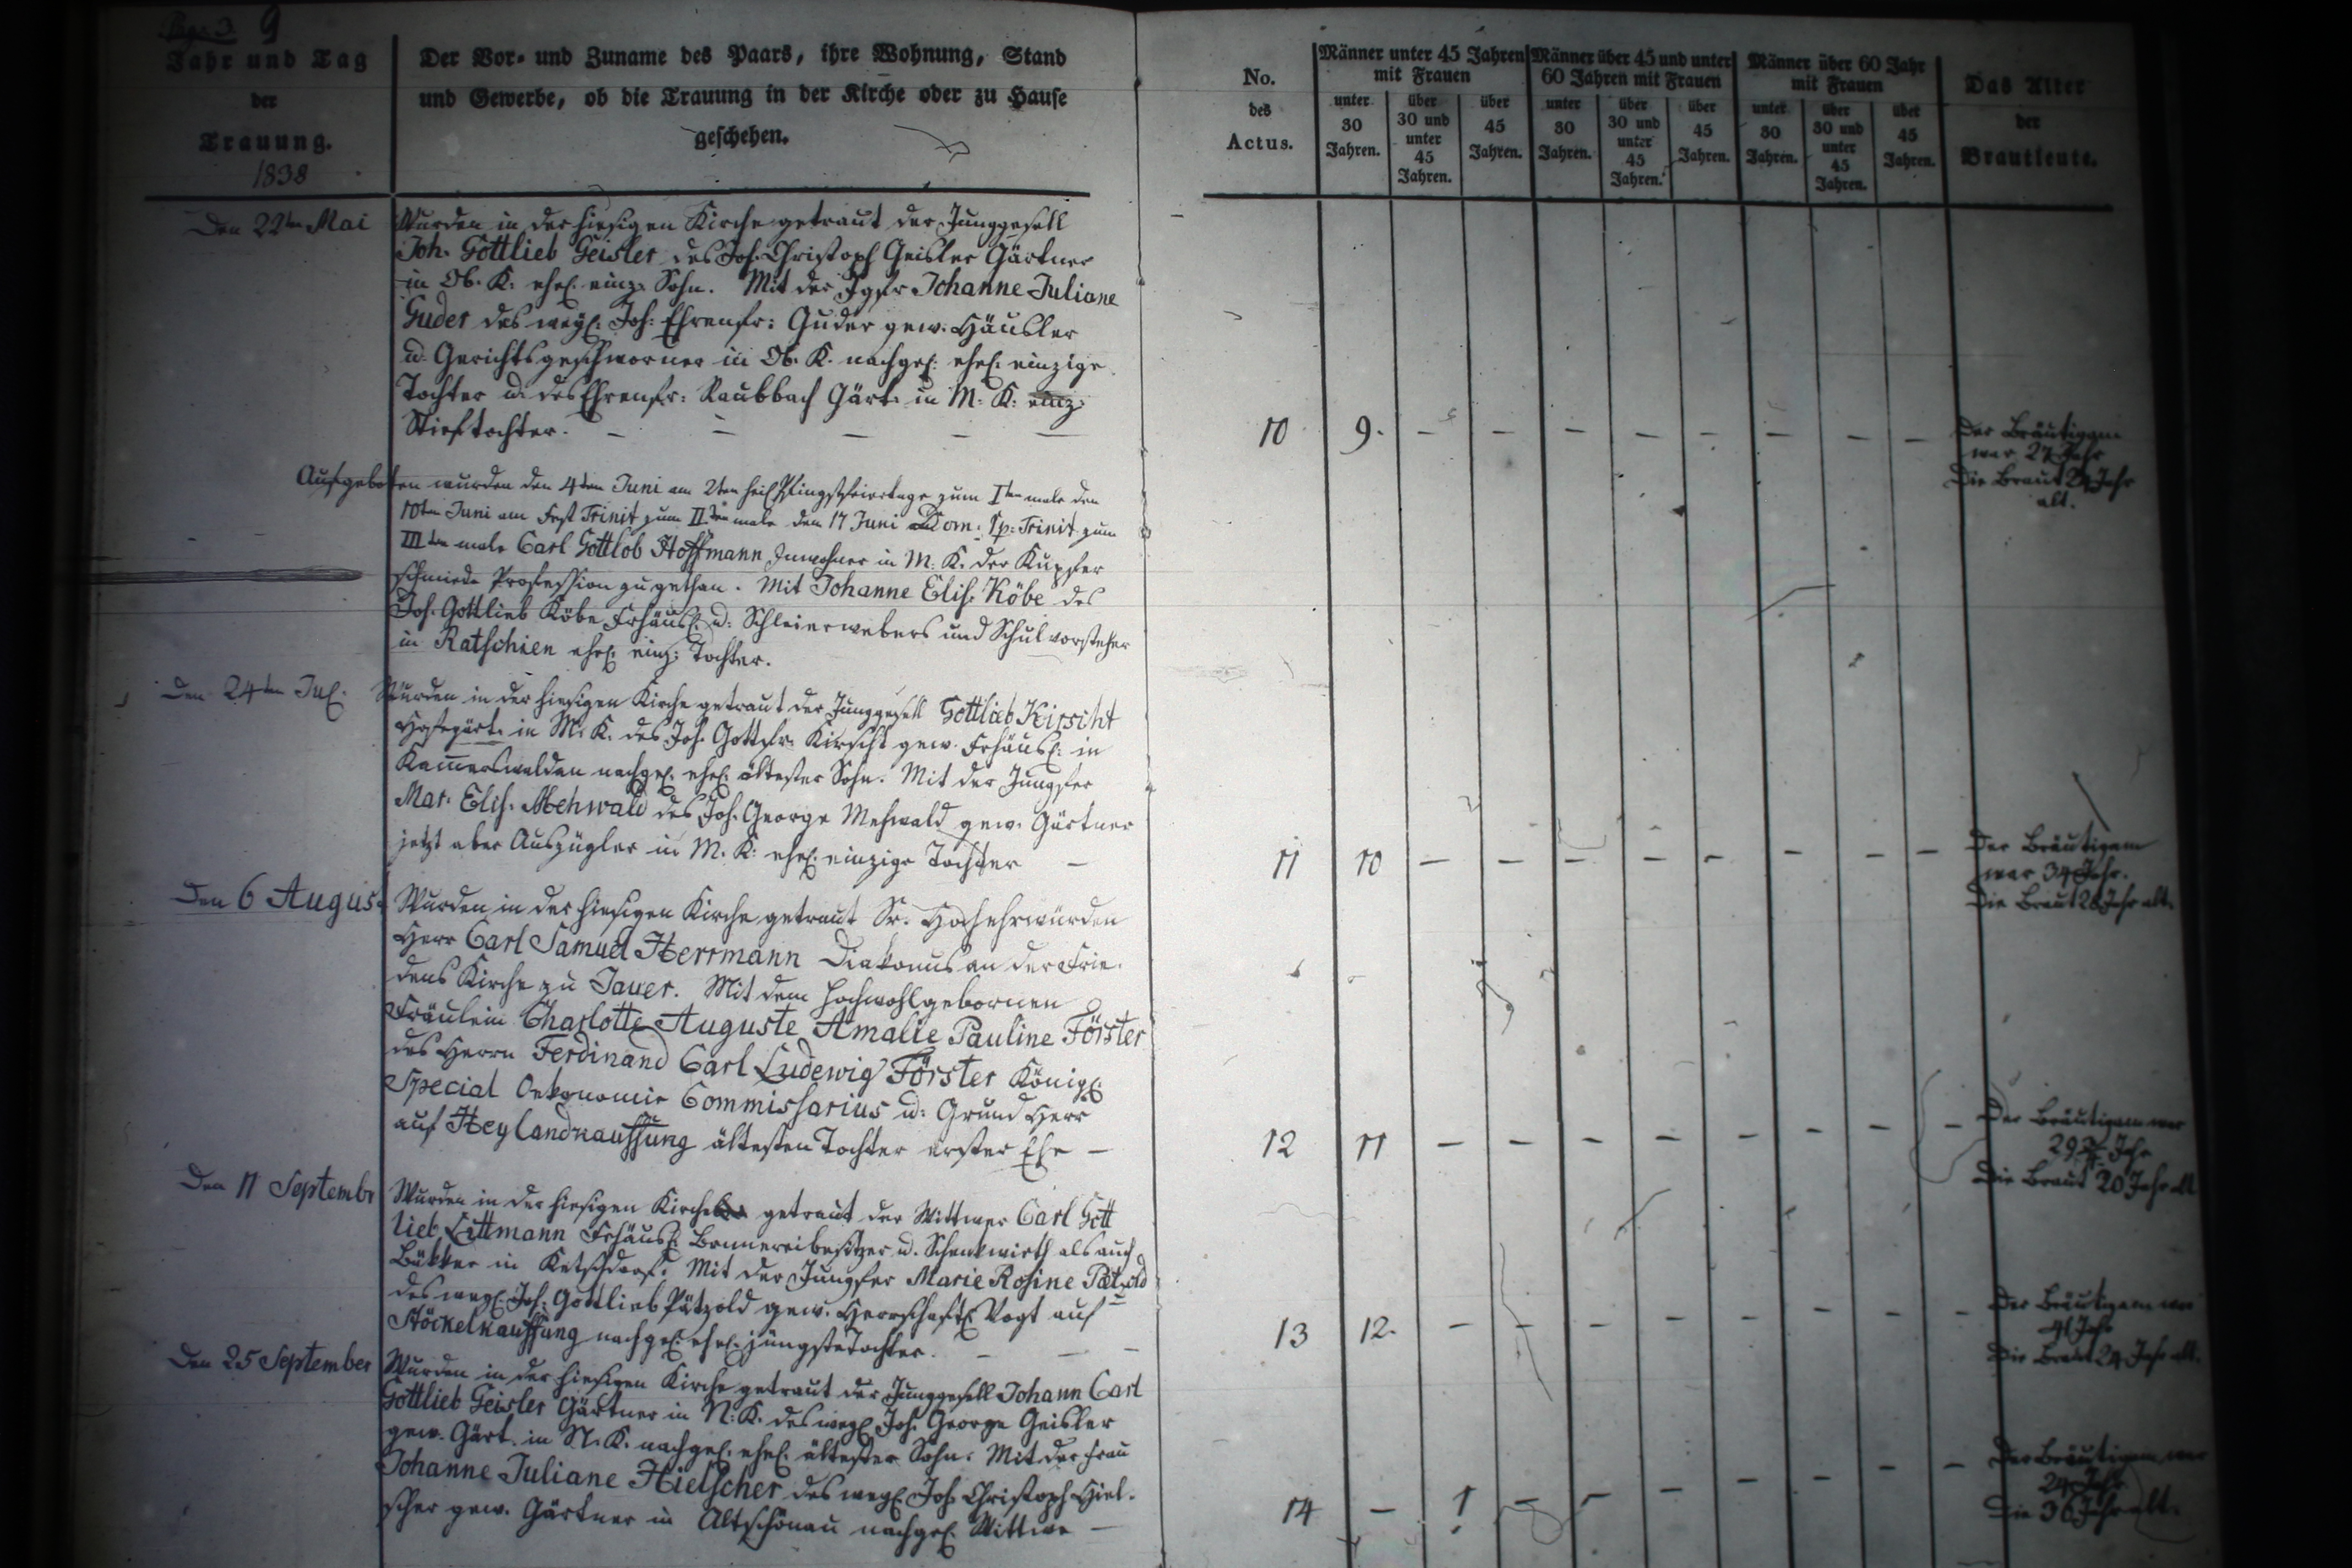 Pag. 3. 9
Jahr und Tag
der
Trauung.
1838
Der Vor- und Zuname des Paars, ihre Wohnung, Stand
und Gewerbe, ob die Trauung in der Kirche oder zu Hause
geschehen.
No.
des
Actus.
Männer unter 45 Jahren
mit Frauen
unter
30
Jahren.
über
30 und
unter
45
Jahren.
über
45
Jahren.
Männer über 45 und unter
60 Jahren mit Frauen
unter
30
Jahren.
über
30 und
unter
45
Jahren.
über
45
Jahren.
Männer über 60 Jahr
mit Frauen
unter
30
Jahren.
über
30 und
unter
45
Jahren.
über
45
Jahren.
Das Alter
der
Brautleute.
Den 22ten Mai
Wurden in der hiesigen Kirche getraut der Junggesell
Joh. Gottlieb Geisler des Joh. Christoph Geisler Gärtner
in Ob. K. ehel. einz. Sohn. Mit der Jgfr Johanne Juliane
Guder des weyl. Joh. Ehrenfr: Guder gew. Häusler
u. Gerichtsgeschworner in Ob. K. nachgel: ehel. einzige
Tochter u. des Ehrenfr: Raubbach Gärt. in M: K: einz:
Stieftochter. – – – – –
10 9. – – – – – – – –
Der Bräutigam
war 27 Jahr
Die Braut 24 Jahr
alt.
Aufgeboten wurden den 4ten Juni am 2ten heil Pfingstfeiertage zum Iten male den
10ten Juni am Fest Trinit zum IIten male den 17 Juni Dom: 1 p: Trinit zum
IIIten male Carl Gottlob Hoffmann Inwohner in M. K. der Kupfer
schmiede Profession zugethan. Mit Johanne Elis. Köbe des
Joh. Gottlieb Köbe Frhäusl. u: Schleierwebers und Schulvorsteher
in Ratschien ehel. einz: Tochter.
Den 24ten Jul.
Wurden in der hiesigen Kirche getraut der Junggesell Gottlieb Kirscht
Hofegärt. in M. K. des Joh. Gottfr. Kirscht gew. Frhäusl: in
Kam̅erswaldau nachgel. ehel. ältester Sohn. Mit der Jungfer
Mar. Elis. Mehwald des Joh. George Mehwald gew. Gärtner
jetzt aber Auszügler in M. K: ehel. einzige Tochter –
11 10 – – – – – – – –
Der Bräutigam
war 34 Jahr.
Die Braut 28 Jahr alt.
Den 6 August
Wurden in der hiesigen Kirche getraut Sr. Hochehrwürden
Herr Carl Samuel Herrmann Diakonus an der Frie-
dens Kirche zu Jauer. Mit dem Hochwohlgebornen
Fräulein Charlotte Auguste Amalie Pauline Förster
des Herrn Ferdinand Carl Ludewig Förster Königl.
Special Oekonomie Commissarius u: Grund Herr
auf Heylandkauffung ältesten Tochter erster Ehe –
12 11 – – – – – – – –
Der Bräutigam war
29 Jahr
Die Braut 20 Jahr alt
Den 11 Septembr
Wurden in der hiesigen Kirche getraut der Wittwer Carl Gott
lieb Littmann Frhäusl: Brennereibesitzer u. Schenkwirth als auch
Bäkker in Ketschdorf. Mit der Jungfer Marie Rosine Pätzold
des weyl. Joh: Gottlieb Pätzold gew. Herrschaftl. Vogt auf
Stöckelkauffung nachgel. ehel. jüngste Tochter. – – –
13 12. – – – – – – – –
Der Bräutigam war
41 Jahr
Die Braut 24 Jahr alt.
Den 25 September
Wurden in der hiesigen Kirche getraut der Junggesell Johann Carl
Gottlieb Geisler Gärtner in N: K. des weyl Joh. George Geisler
gew. Gärt. in N. K. nachgel. ehel. ältester Sohn. Mit der Frau
Johanne Juliane Hielscher des weyl Joh. Christoph Hiel-
scher gew. Gärtner in Altschönau nachgel. Wittwe –
14 – 1 – – – – – – –
Der Bräutigam war
24 Jahr
Die 36 Jahr alt.